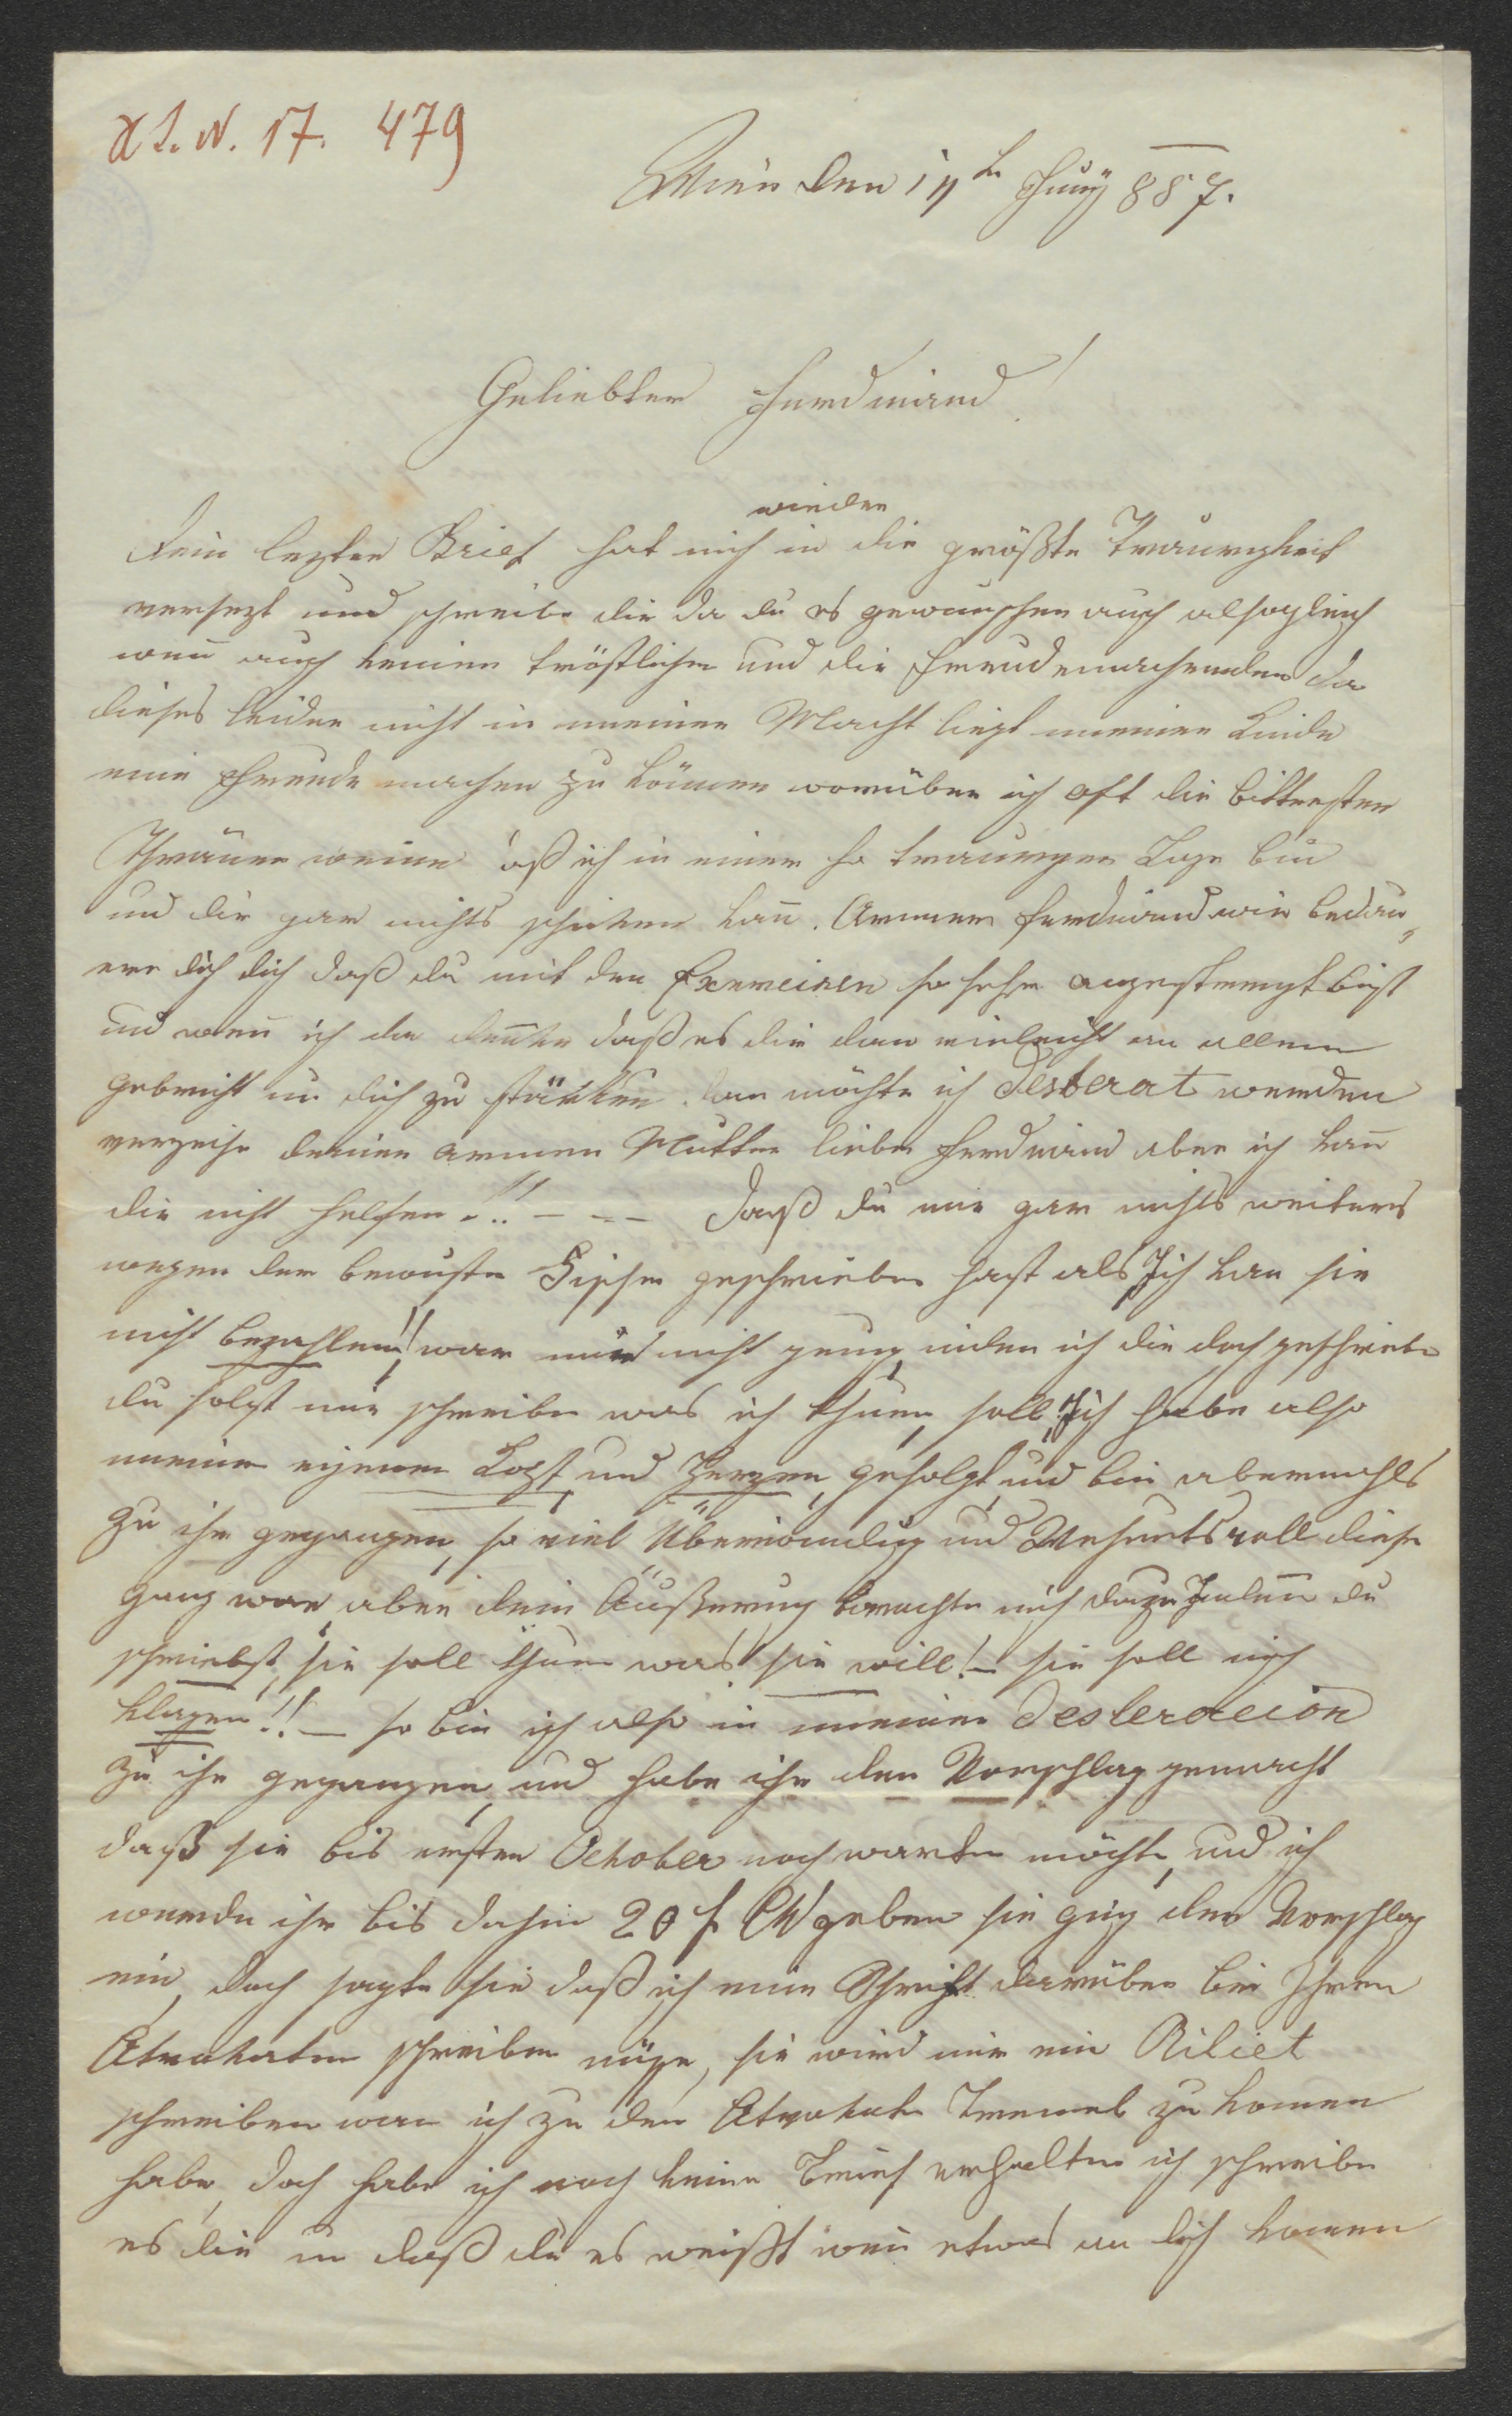 I. N. 17. 479
Wien den 14t Juny 857.
Geliebter Ferdinand!
wieder
Dein lezter Brief hat mich in die größte Traurigkeit
versezt und schreibe dir da du es gewunschen auch alsogleich
wen̄ auch keinen tröstlichen und dir Freudemachenden da
dieses leider nicht in meiner Macht liegt meinen Kinde
eine Freude machen zu können worüber ich oft die bittersten
Thränen weine daß ich in einer so traurigen Lage bin
und dir gar nichts schicken kan̄. Armer Ferdinand wie bedau„
ere dich dich daß du mit den Exerciren so sehr angestrengt bist
und wen̄ ich da denke daß es dir dan vieleicht an allem
gebricht um dich zu stärken dan möchte ich desberat werden
verzeihe deiner armen Mutter lieber Ferdinand aber ich kan̄
dir nicht helfen!! — — — Daß du mir gar nichts weiters
wegen der bewusten geschrieben hast als Ich kan sie
nicht bezahlen!! war mir nicht genug, indem ich dir doch geschrieben
du solst mir schreiben was ich thuen soll, Ich habe also
meinen eigenen Kopf, und Herzen, gefolgt, und bin abermahls
zu ihr gegangen, so viel Überwindung und Mühevoll dieser
Gang war, aber dein Äußerung brachte mich dazu, den̄ du
schriebst, sie soll thuen was sie will! — sie soll mich
klagen!! — so bin ich also in meiner Desberacion
zu ihr gegangen, und habe ihr den Vorschlag gemacht
daß sie bis ersten October noch warten möchte, und ich
werde ihr bis dahin 20 f CM geben sie ging den Vorschlag
ein, doch sagte sie daß ich eine Schrift darüber bei Ihren
Atvokaten schreiben müße, sie wird mir ein Biliet
schreiben wan ich zu den Atvokaten zu komen
habe, doch habe ich noch keinen Brief erhalten ich schreibe
es dir nur daß du es weißt wen̄ etwas an dich komen